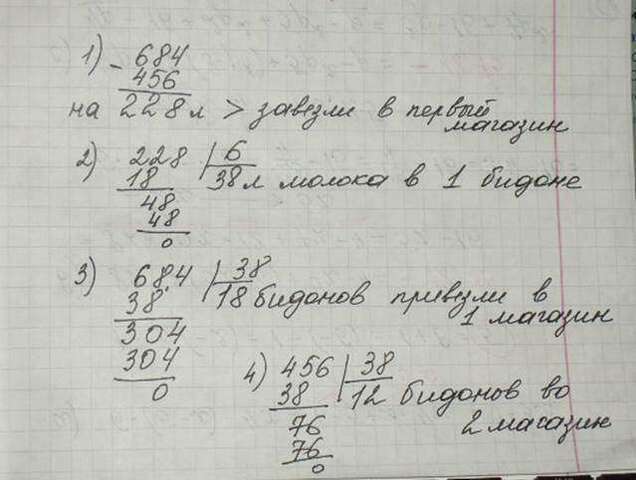 1) - 684
456
на 228 л > завезли в первый
магазин
2) 228 | 6
18 38 л молока в 1 бидоне
48
48
0
3) 684 | 38
38 18 бидонов привезли в
1 магазин
304
304
0
4) 456 | 38
38 12 бидонов во
2 магазин
76
76
0